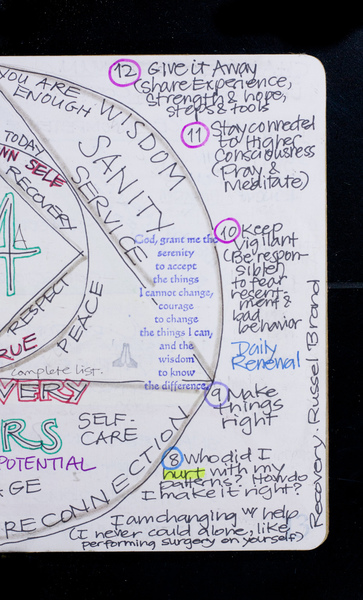 12 Give it Away
(share Experience,
strength & hope,
steps & tools
11 Stay connected
to Higher
Consciousness
(Pray &
Meditate)
10 Keep
Vigilant
(Be respon-
sible)
to fear,
resent-
ment &
bad
behavior
Daily
Renewal
9 Make
things
right
8 who did I
hurt with my
patterns? How do
I make it right?
I am changing w/ help
(I never could alone, like
performing surgery on yourself)
Recovery: Russel Brand
YOU ARE
ENOUGH
WISDOM
SANITY
SERVICE
TODAY
SELF
RECOVERY
4
RESPECT
PEACE
God, grant me the
serenity
to accept
the things
I cannot change,
courage
to change
the things I can,
and the
wisdom
to know
the difference.
complete list.
SELF-
CARE
POTENTIAL
RECONNECTION